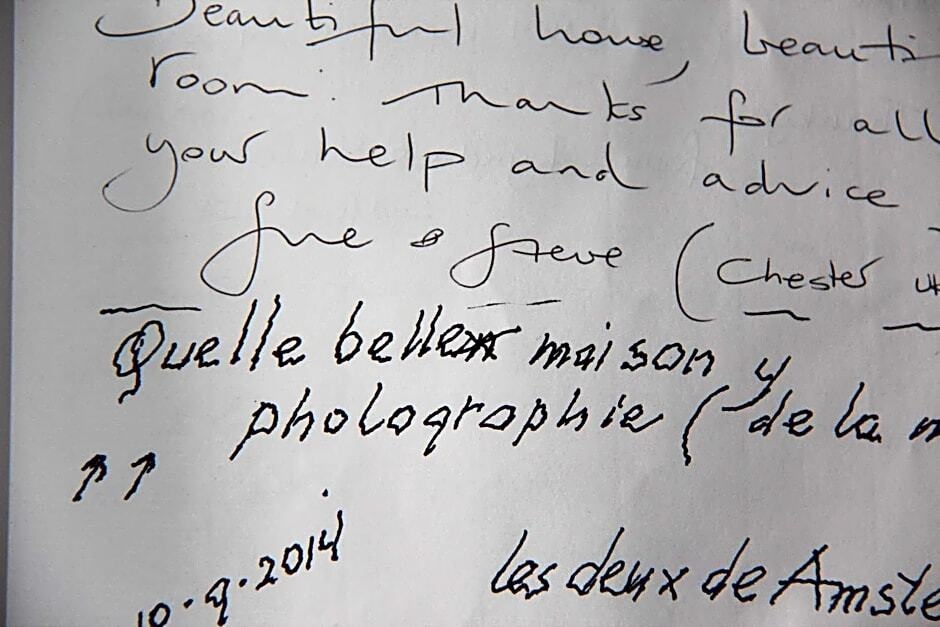 Beautiful house, beauti
room. Thanks for all
your help and advice
Sue & Steve (Chester UK
Quelle belle maison y
photographie (de la m
10.9.2014
les deux de Amste